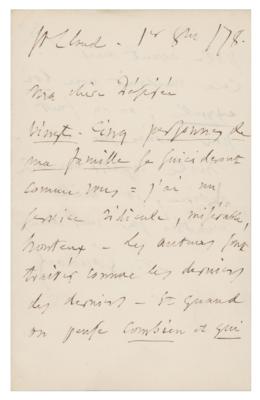 St Cloud - 1er 8bre / 78.
ma chère Désirée
Vingt-Cinq personnes de
ma famille se suicideront
comme vous = j'ai un
service ridicule, misérable,
honteux - Les auteurs sont
traités comme les derniers
des derniers - Et quand
on pense combien et qui